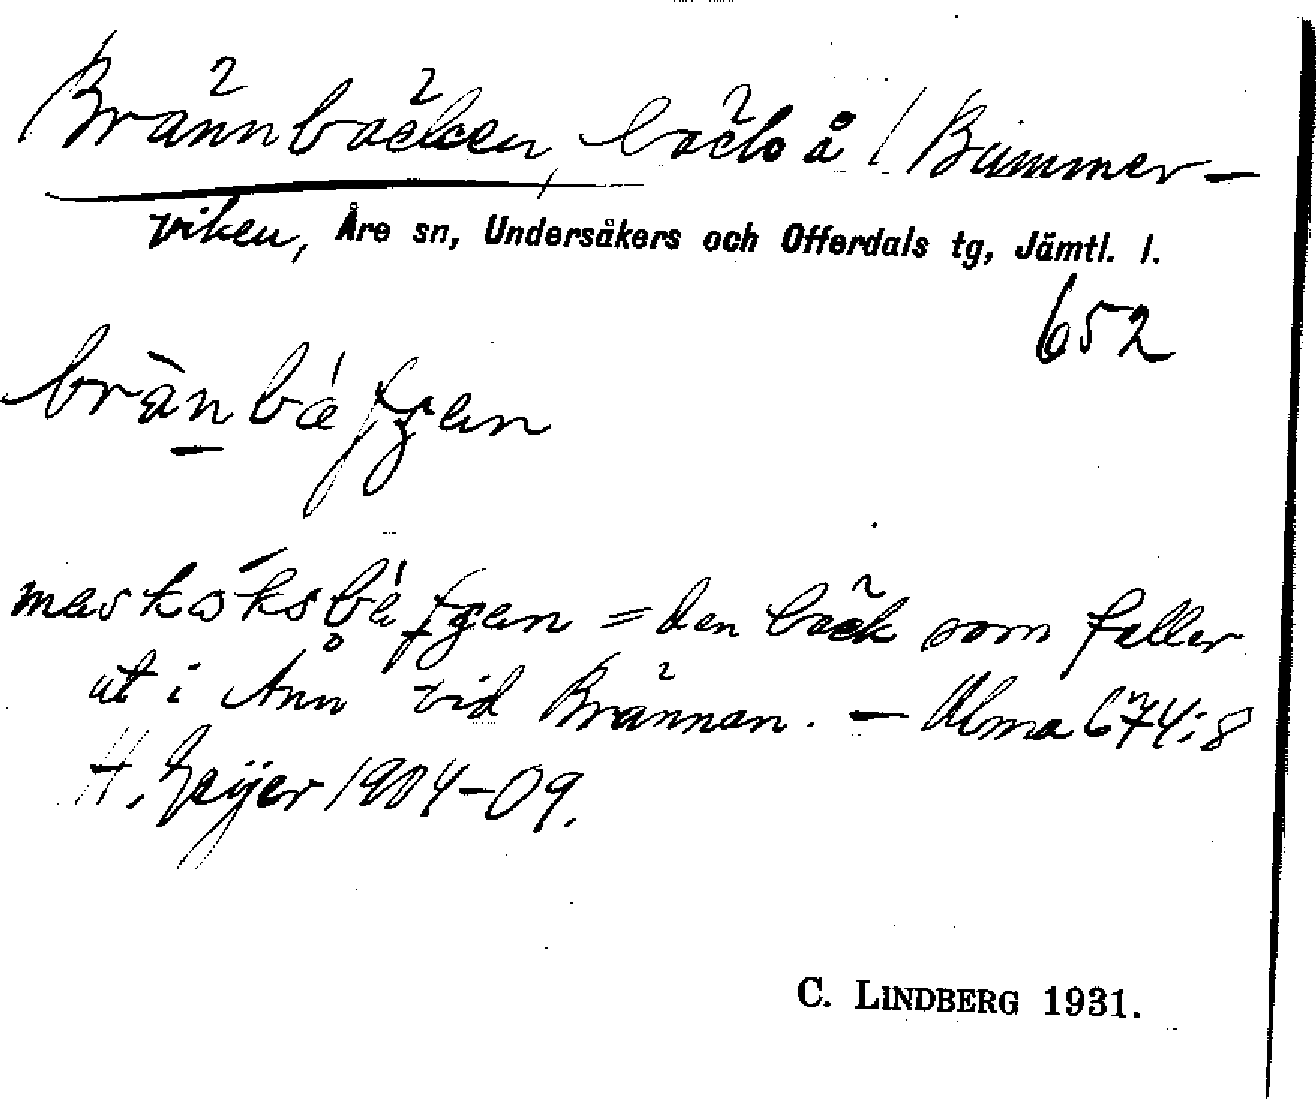 Brännbäcken, bäck å / Bummer-
viken, Åre sn, Undersåkers och Offerdals tg, Jämtl. l.
652
brànbǽʃʒen
= den bäck som faller
ut i Ånn vid Brännan. — Ulma 674:8
H. Geijer 1904-09.
C. LINDBERG 1931.